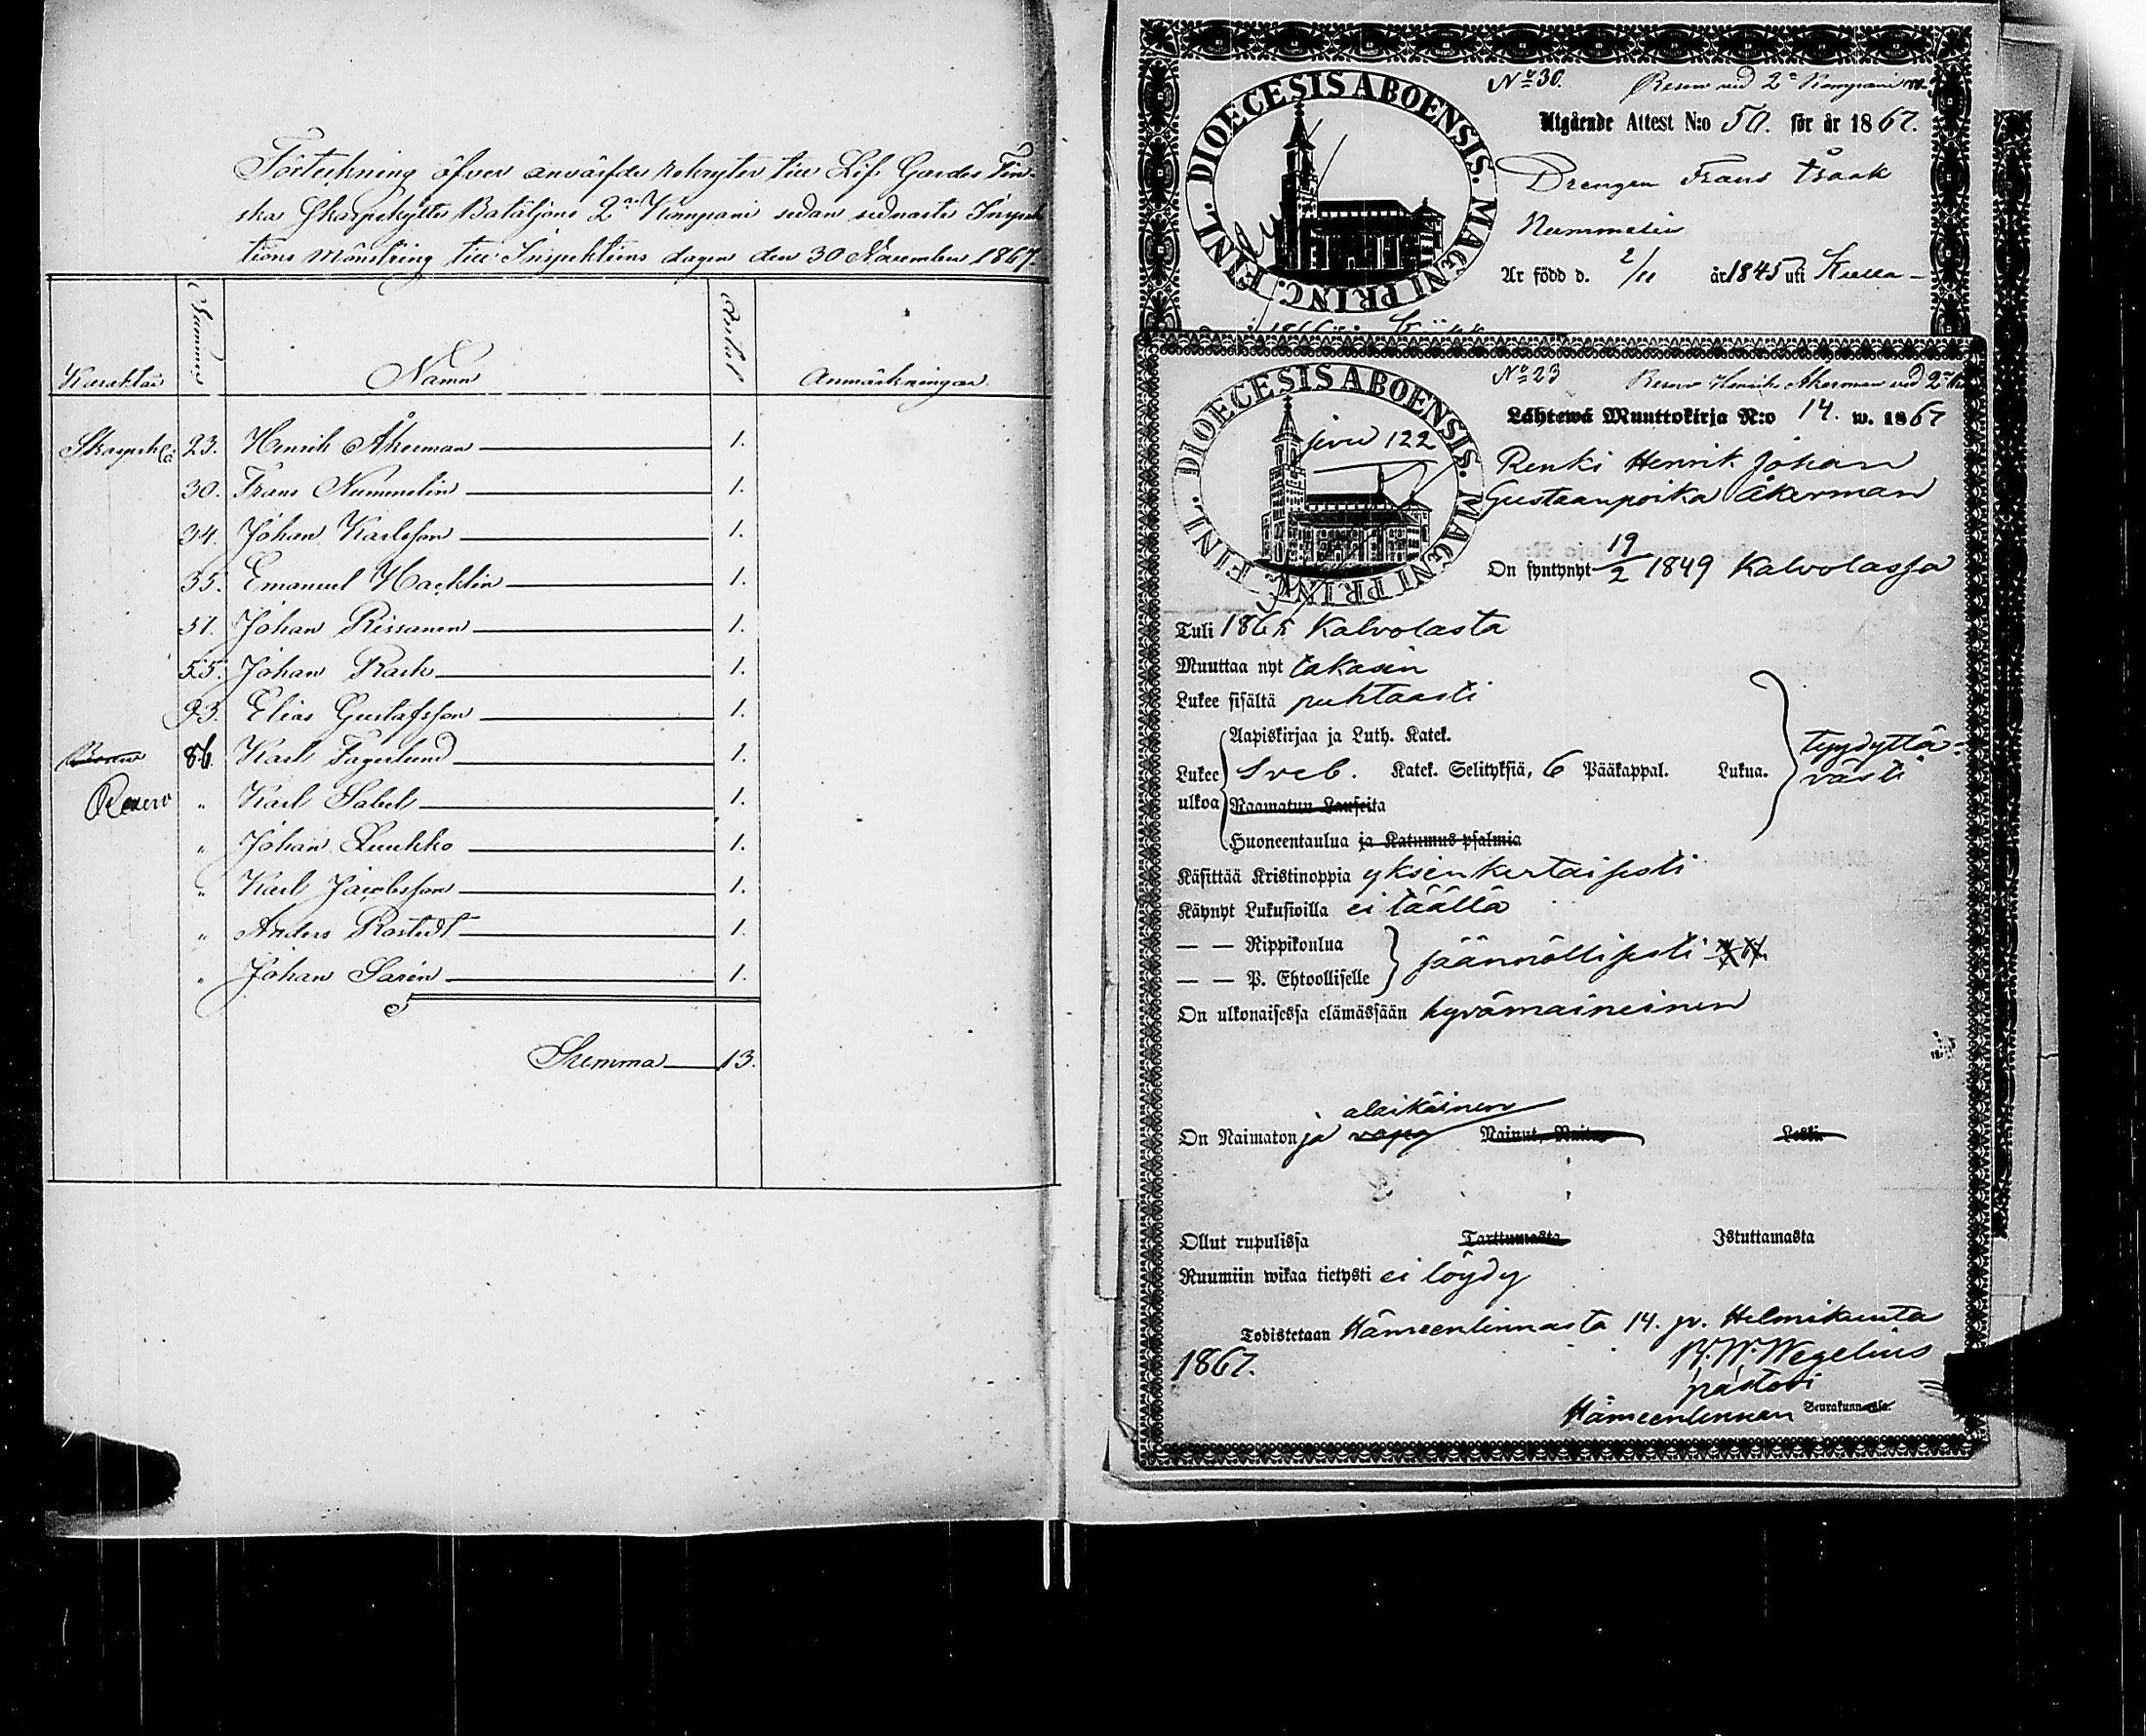 Förteckning öfver anvärfde rekryter till Lif Gardes Fin-
ska Skarpskytte Bataljons 2:a Kompani sedan sednaste Inspek
tions Mönstring till Inspektions dagen den 30 November 1867.
Karaktär Nummer Namn Antal Anmärkningar
23. Henrik Åkerman 1.
30. Frans Nummelin 1.
34. Johan Karlsson 1.
35. Emanuel Hacklin 1.
51. Johan Rissanen 1.
55. Johan Rask 1.
93. Elias Gustafsson 1.
86. Karl Fagerlund 1.
Reserv " Karl Sabel 1.
" Johan Luukko 1.
" Karl Jacobsson 1.
" Anders Rostedt 1.
" Johan Sarin 1.
Summa 13.
No 30. Reserv vid 2:a Kompani
DIOECESIS ABOENSIS. MAGNI PRINC. FINL.
Utgående Attest N:o 50. för år 1867.
Drengen Frans Isaak
Nummelin
Är född d. 2/11 år 1845 uti Kulla
No 23 Reserv Henrik Åkerman vid 2:a
DIOECESIS ABOENSIS. MAGNI PRINC. FINL.
sivu 122
Lähtewä Muuttokirja N:o 14. w. 1867
Renki Henrik Johan
Gustaanpoika Åkerman
On syntynyt 19/2 1849 Kalvolassa
Tuli Kalvolasta
Muuttaa nyt takasin
Lukee sisältä puhtaasti
Aapiskirjaa ja Luth. Katek.
Lukee ulkoa Sveb. Katek. Selityksiä, 6 Pääkappal. Lukua. tyydyttä-
västi
Raamatun Lauseita
Huoneentaulua ja Katumus psalmia
Käsittää Kristinoppia yksinkertaisesti
Käynyt Lukusioilla ei täällä
— — Rippikoulua
— — P. Ehtoolliselle säännöllisesti
On ulkonaisessa elämässään hyvämaineinen
alaikäinen
On Naimaton ja vapa Nainut, Leski
Ollut rupulissa Tarttumasta Istuttamasta
Ruumiin wikaa tietysti ei löydy
Todistetaan Hämeenlinnasta 14. p. Helmikuuta
1867. Wegelius
pastori
Hämeenlinnan Seurakunnassa